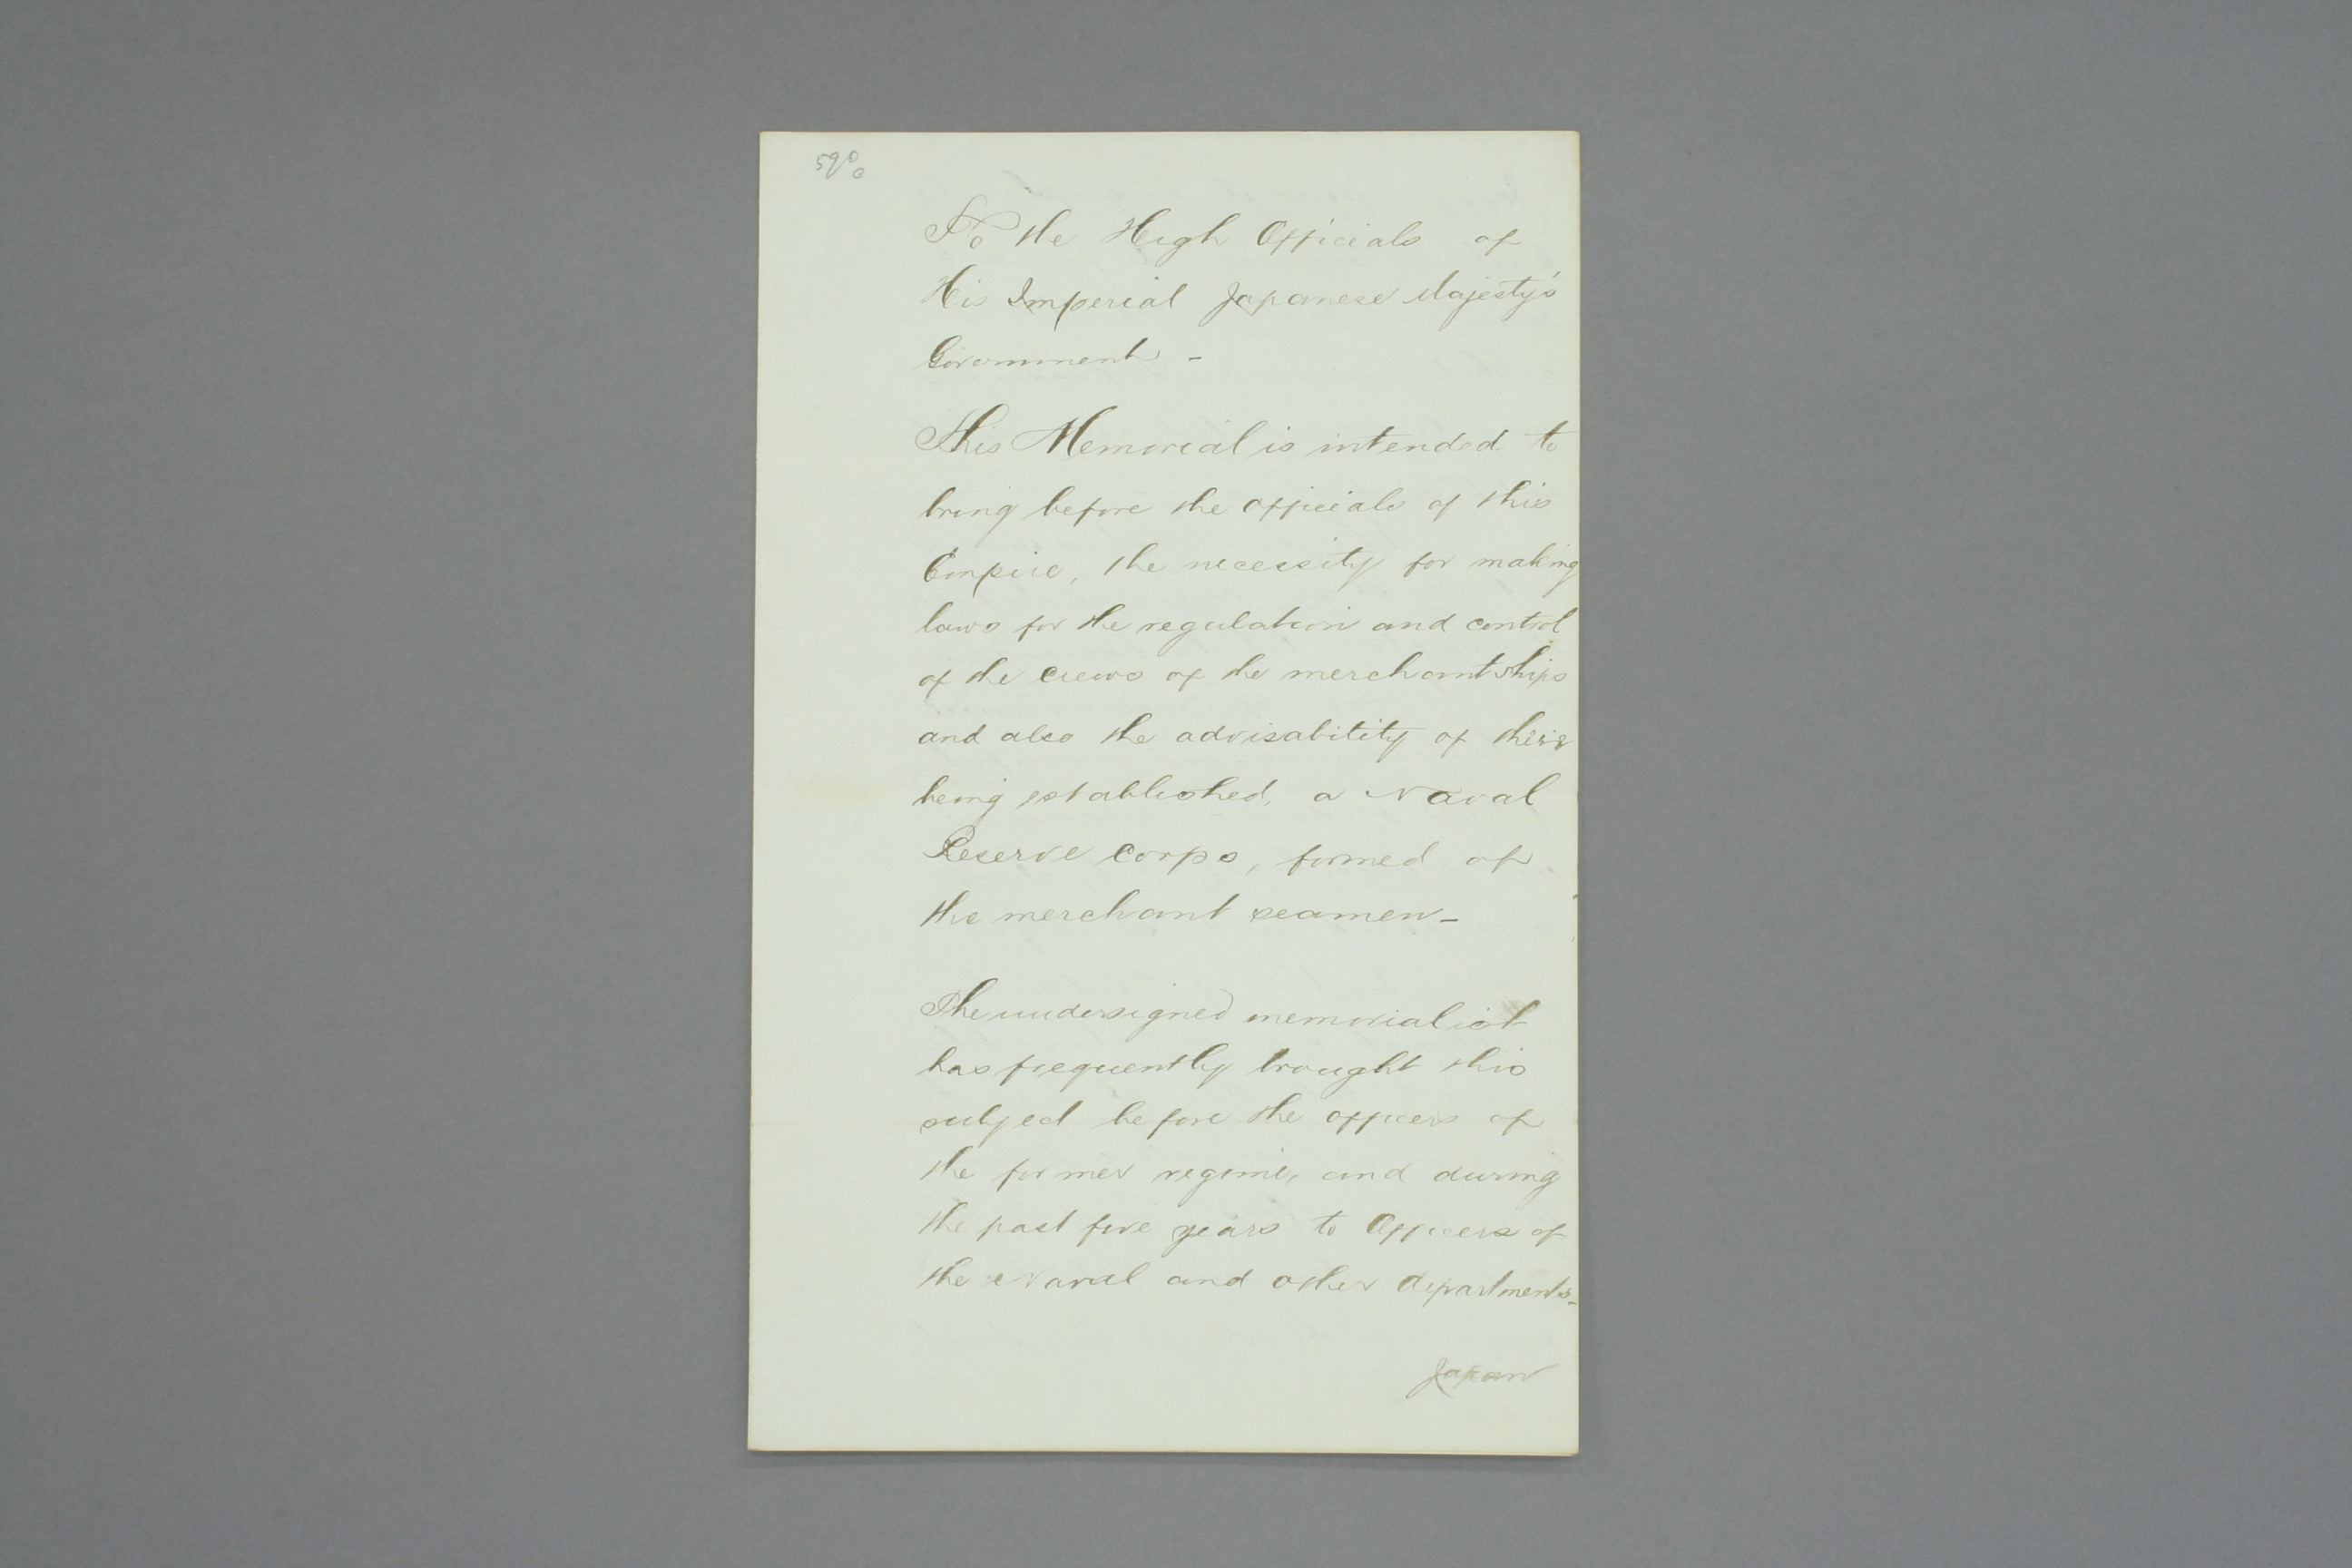 To the High Officials of
His Imperial Japanese Majesty's
Government -
This Memorial is intended to
bring before the officials of this
Empire, the necessity for making
laws for the regulation and control
of the crews of the merchantships
and also the advisability of their
being established, a Naval
Reserve corps, formed of
the merchant seamen -
The undersigned memorialist
has frequently brought this
subject before the officers of
the former regime, and during
the past five years to Officers of
the Naval and other departments -
Japan